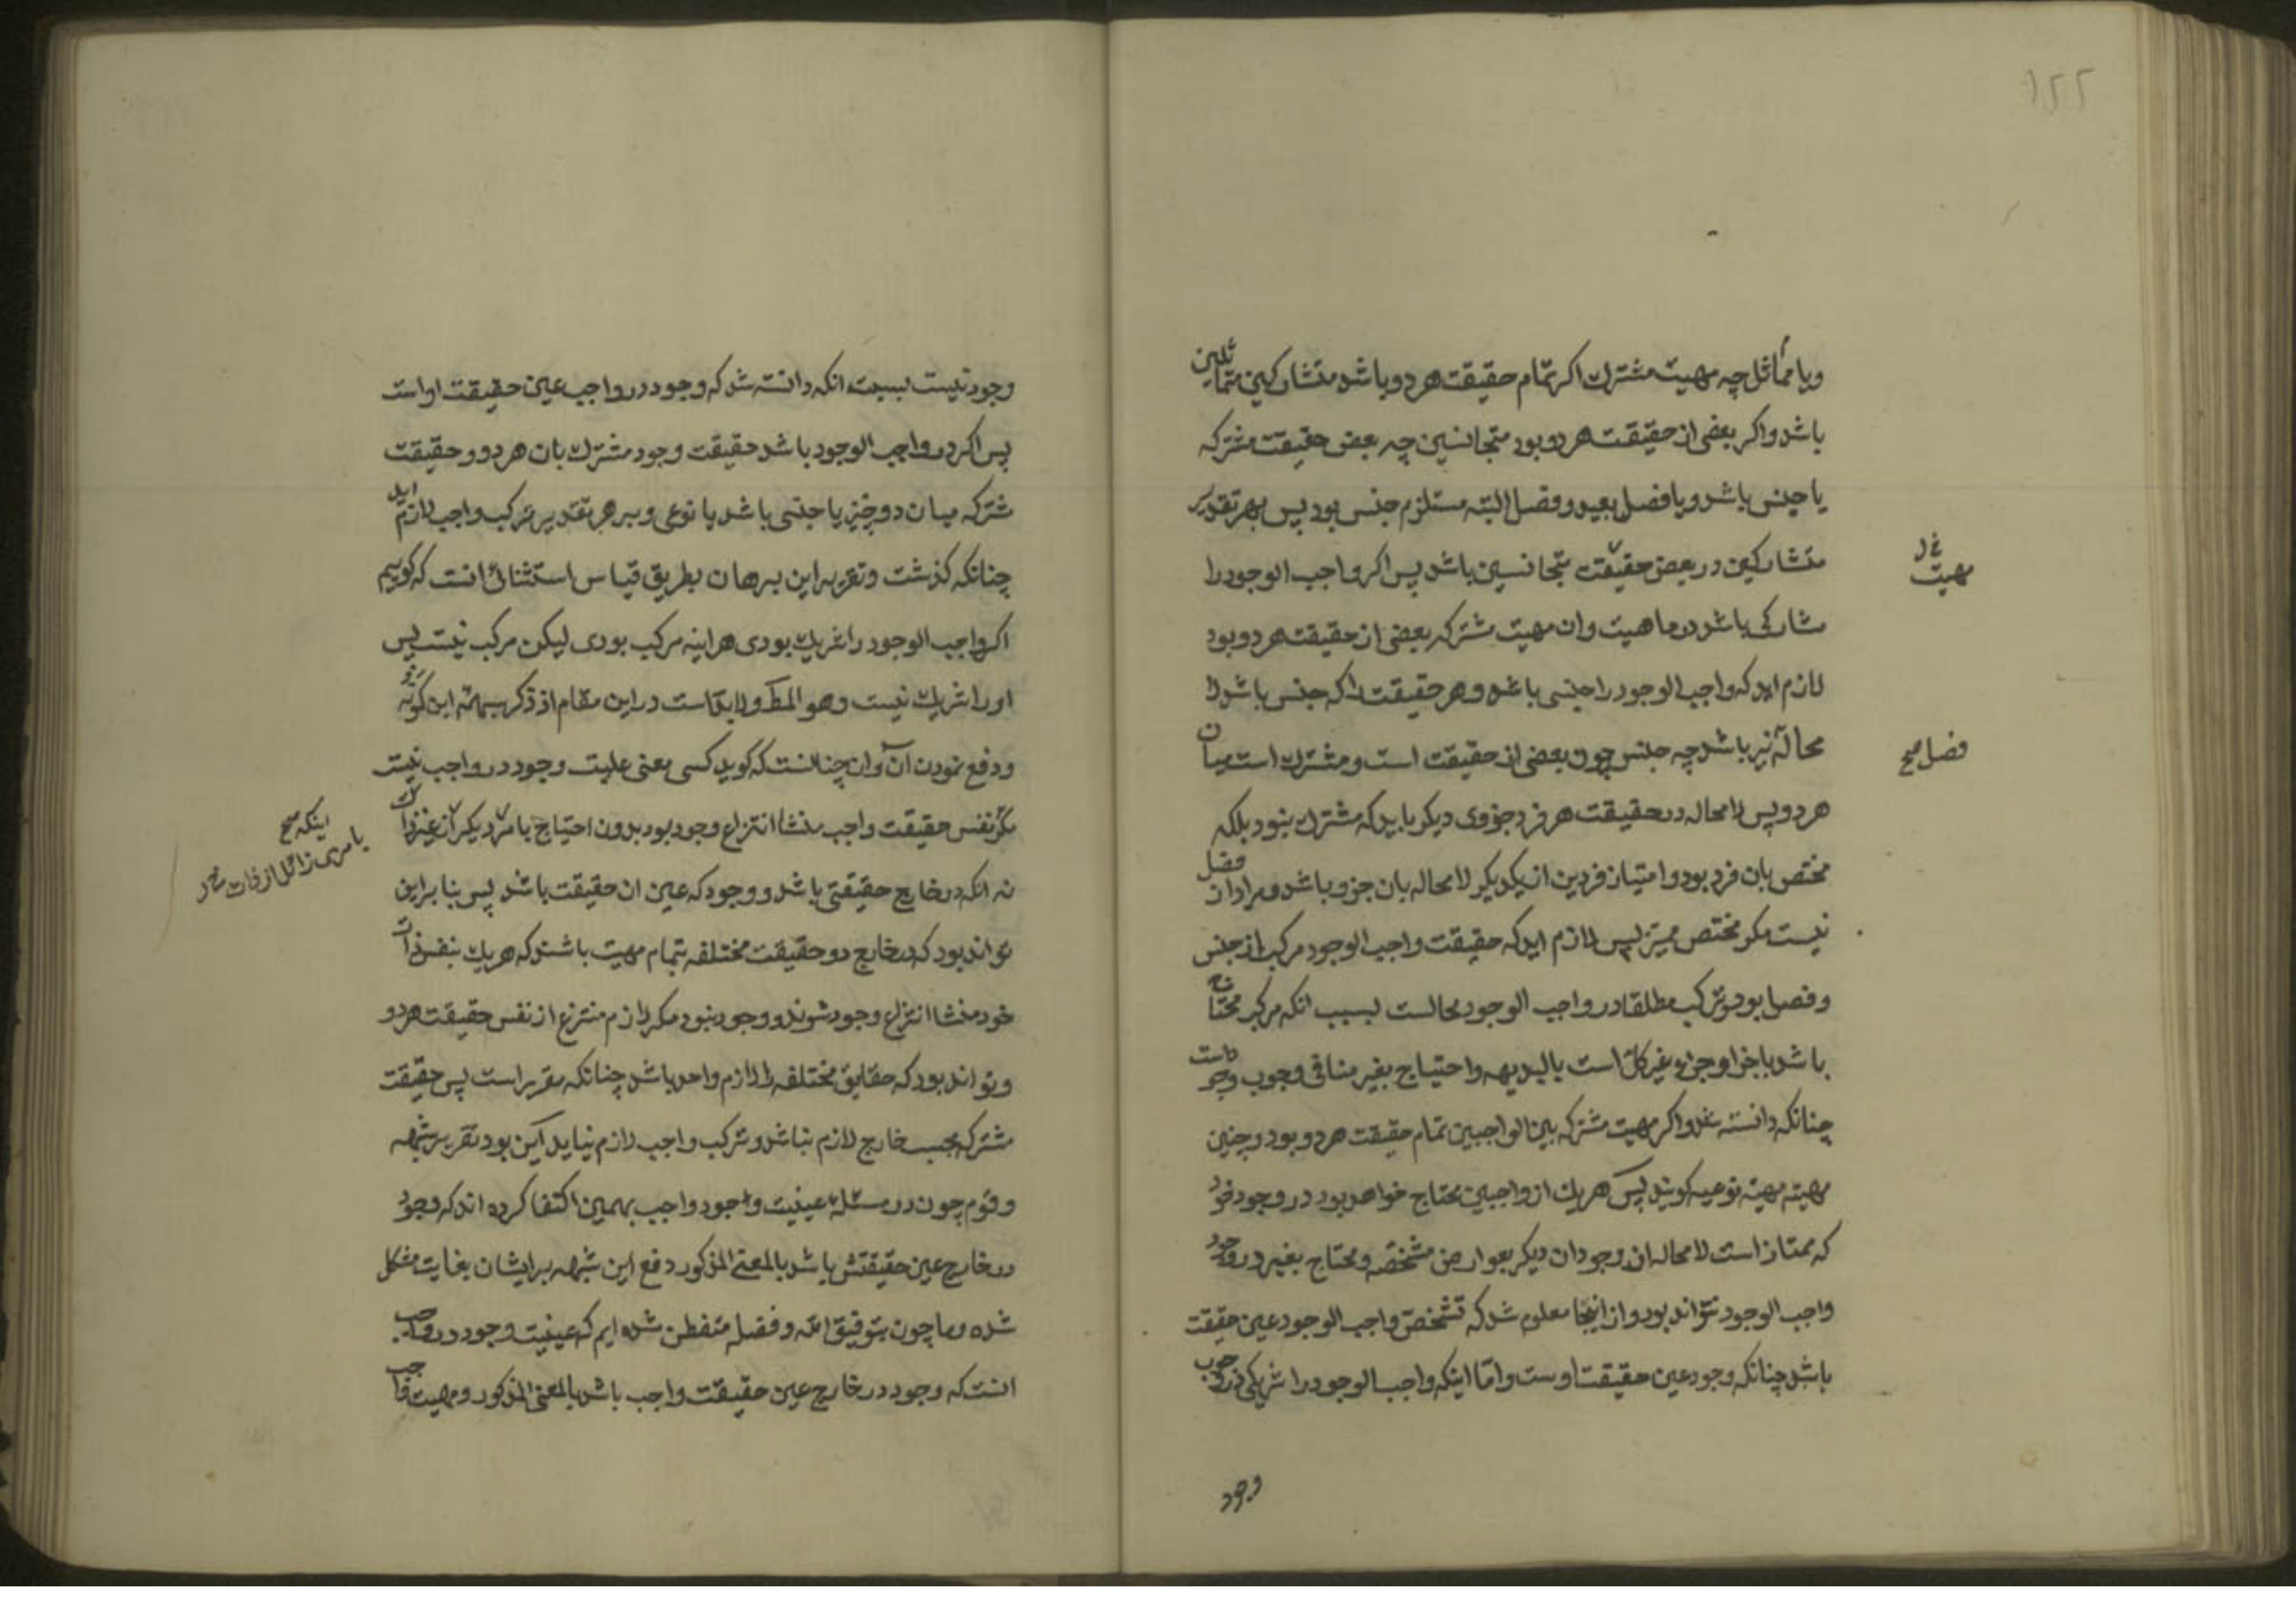 ۱۲۲
ویا مماثل چه مهیت مشترك اکر تمام حقیقت هر دو باشد متشارکین متماثلین
باشد واکر بعضی از حقیقت هر دو بود متجانسین چه بعض حقیقت مشترکه
یا جنس باشد ویا فصل بعید وفصل البته مستلزم جنس بود پس بهر تقدیر
متشارکین در بعض حقیقت متجانسین باشد پس اکر واجب الوجود را
مشارکی باشد در ماهیت وان مهیت مشترکه بعضی از حقیقت هر دو بود
لازم اید که واجب الوجود را جنسی باشد وهر حقیقت را که جنس باشد لا
محاله باشد چه جنس چون بعضی از حقیقت است ومشترك است میان
هر دو پس لامحاله در حقیقت هر فرد جزوی دیکر باید که مشترك نبود بلکه
مختص بان فرد بود وامتیاز فردین از یکدیکر لامحاله بان جزو باشد ومراد از فصل
نیست مکر مختص ممیز پس لازم اید که حقیقت واجب الوجود مرکب از جنس
وفصل بود وترکیب مطلقا در واجب الوجود محالست بسبب انکه مرکب محتاج
باشد باجزا وجزء غیر کل است بالبدیهه واحتیاج بغیر منافی وجوب وجود است
چنانکه دانسته شد واکر مهیت مشترکه بین الواجبین تمام حقیقت هر دو بود وچنین
مهیته مهیة نوعیه کویند پس هر یك از واجبین محتاج خواهد بود در وجود خود
که ممتاز است لامحاله از وجود ان دیکر بعوارض مشخصه ومحتاج بغیر در وجود
واجب الوجود نتواند بود واز اینجا معلوم شد که تشخص واجب الوجود عین حقیقت
باشد چنانکه وجود عین حقیقت اوست واما اینکه واجب الوجود را شریکی در وجوب
مهیت
فصل صح
وجود
وجود نیست بسبب انکه دانسته شد که وجود در واجب عین حقیقت او است
پس اکر در واجب الوجود باشد حقیقت وجود مشترك بان هر دو وحقیقت
مشترکه میان دو چیز یا جنسی باشد یا نوعی وبر هر تقدیر ترکیب واجب لازم اید
چنانکه کذشت وتقریر این برهان بطریق قیاس استثنائی انست که کوییم
اکر واجب الوجود را شریك بودی هراینه مرکب بودی لیکن مرکب نیست پس
او را شریك نیست وهو المط ولابد است در این مقام از ذکر شبهه ابن کمونه
ودفع نمودن آن وان چنانست که کوید کسی معنی عینیت وجود در واجب نیست
مکر نفس حقیقت واجب منشا انتزاع وجود بود بدون احتیاج بامر دیکر از غیر ذات
نه انکه در خارج حقیقتی باشد ووجود که عین ان حقیقت باشد پس بنا براین
تواند بود که در خارج دو حقیقت مختلفه بتمام مهیت باشند که هر یك بنفس ذات
خود منشا انتزاع وجود شوند ووجود نبود مکر لازم منتزع از نفس حقیقت هر دو
وتواند بود که حقایق مختلفه را لازم واحد باشد چنانکه مقرر است پس حقیقت
مشترکه بحسب خارج لازم نباشد وترکیب واجب لازم نیاید این بود تقریر شبهه
وقوم چون در مسئله عینیت وجود واجب بهمین اکتفا کرده اند که وجود
در خارج عین حقیقتش باشد بالمعنی المذکور دفع این شبهه بر ایشان بغایت مشکل
شده وما چون بتوفیق الله وفضله متفطن شده ایم که عینیت وجود در واجب
انست که وجود در خارج عین حقیقت واجب باشد بالمعنی المذکور ومهیت واجب
اینکه صح
بامری زائل از ذات